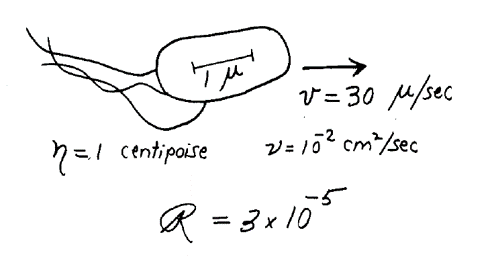 1 μ
v = 30 μ/sec
η = 1 centipoise
ν = 10⁻² cm²/sec
R = 3 × 10⁻⁵